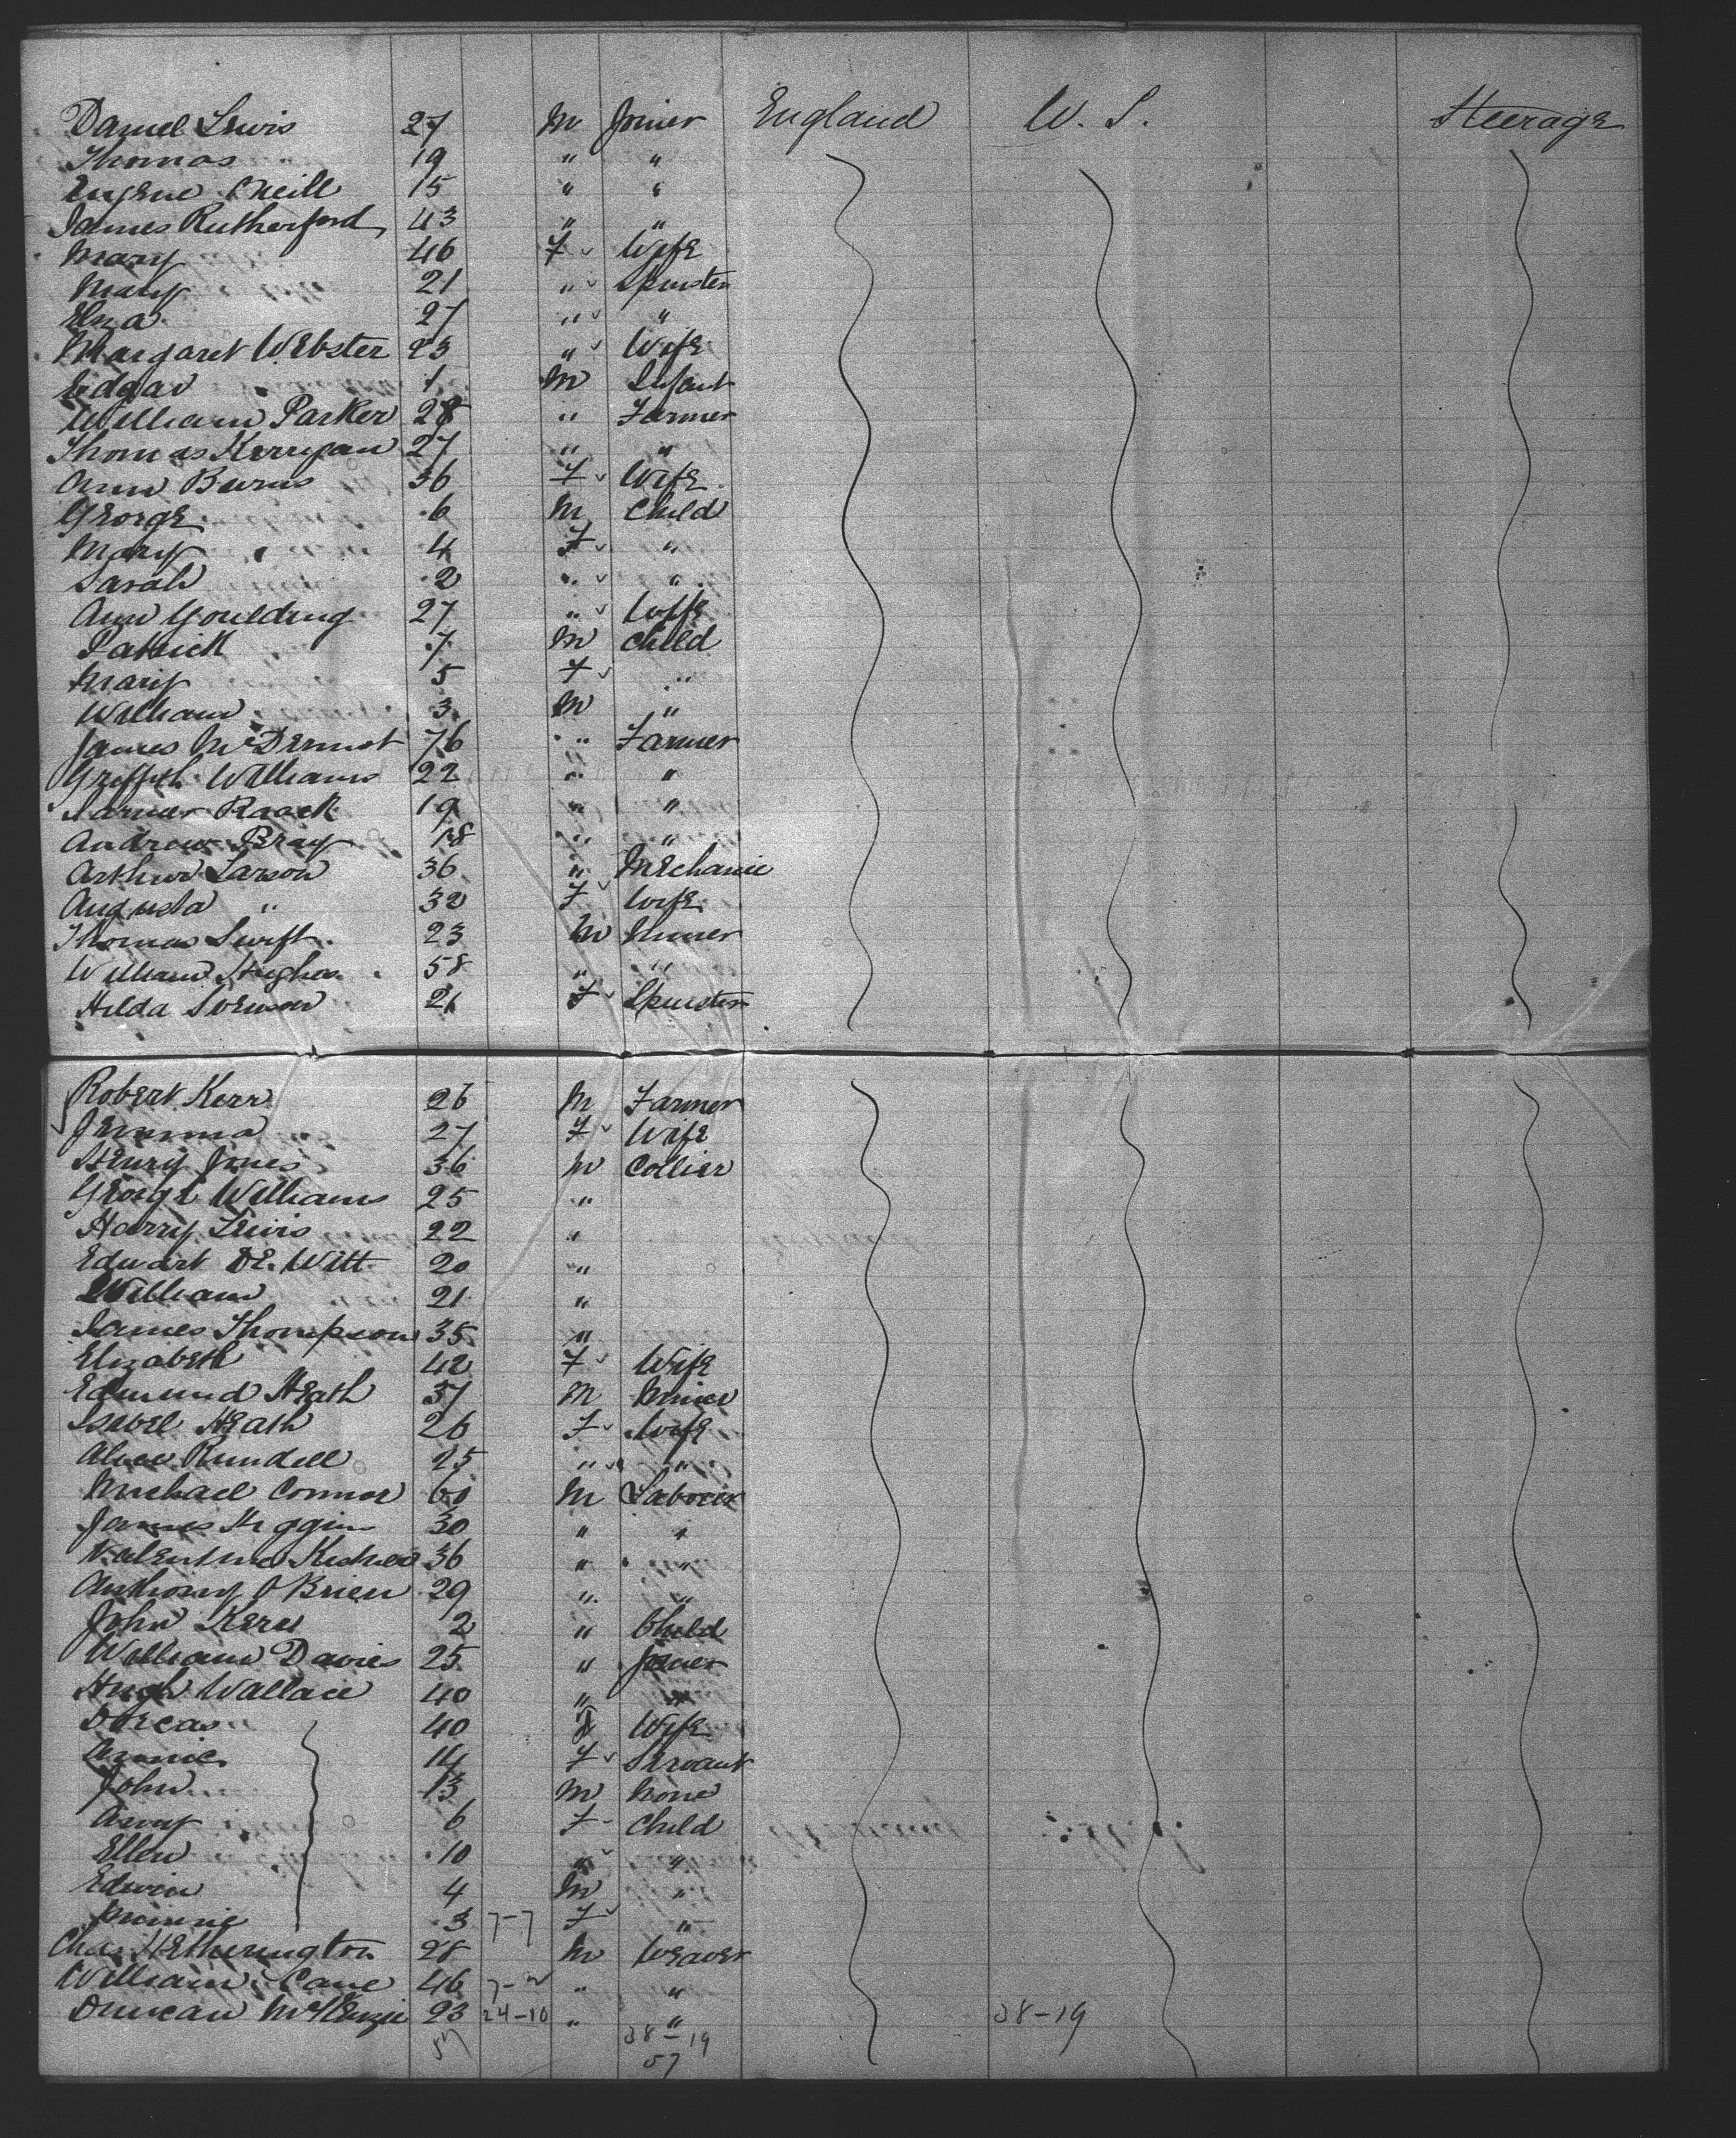 Daniel Lewis 27 M Joiner England U. S. Steerage
Thomas " 19 " "
Eugene O'Neill 15 " "
James Rutherford 43 " "
Mary 46 F Wife
Mary 21 " Spinster
Eliza 27 " "
Margaret Webster 23 " Wife
Edgar 1 M Infant
William Parker 28 " Farmer
Thomas Kerrigan 27 " "
Ann Burns 36 F Wife
George 6 M Child
Mary " 4 F "
Sarah 2 " "
Ann Goulding 27 " Wife
Patrick 7 M Child
Mary 5 F "
William 3 M "
James McDermot 76 " Farmer
Griffith Williams 22 " "
Raack 19 " "
Andrew Bray 18 " "
Arthur Larson 36 " Mechanic
Augusta " 32 F Wife
Thomas Swift 23 M Miner
William Hughes 58 " "
Hilda Svenson 21 F Spinster
Robert Kerr 26 M Farmer
Jemima 27 F Wife
Henry Jones 36 M Collier
George Williams 25 "
Harry Lewis 22 "
Eduart De Witt 20 "
William 21 "
James Thompson 35 "
Elizabeth 42 F Wife
Edmund Heath 37 M Miner
Isabel Heath 26 F Wife
Alice Rundell 25 " "
Michael Connor 60 M Laborer
James Higgins 30 " "
Valentine 36 " "
Anthony O'Brien 29 " "
John Kerr 2 " Child
William Davies 25 " Joiner
Hugh Wallace 40 " "
Dorcas " 40 F Wife
Annie 14 F Servant
John 13 M None
Amy 6 F Child
Ellen 10 " "
Edwin 4 M "
Minnie 3 7-7 F "
Chas Hetherington 28 M Weaver
William Cane 46 " "
Duncan McKenzie 23 24-10 " " 38-19
57 38-19
57